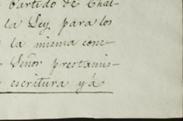 Partido de Chal-
la Ley, para los
la misma conc-
Señor prestamis-
escritura y á